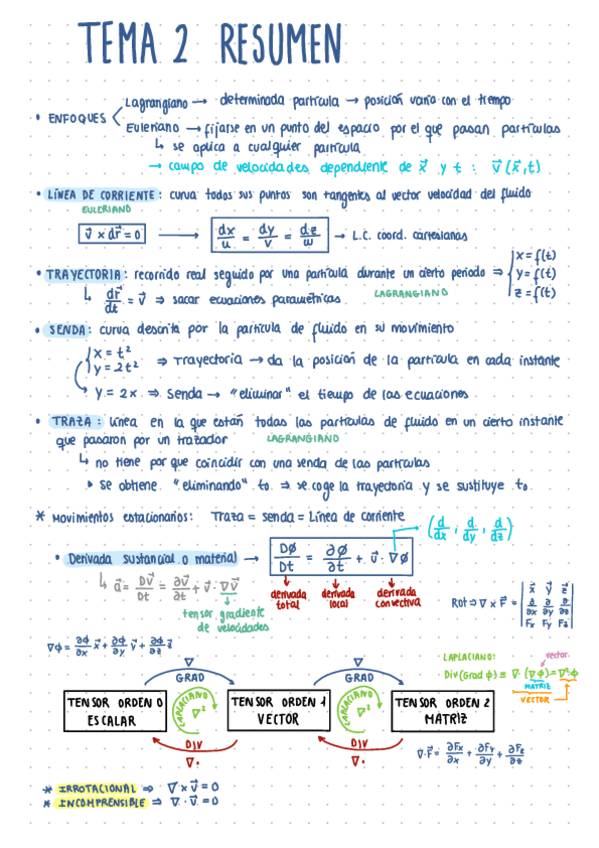 TEMA 2 RESUMEN
• ENFOQUES < Lagrangiano → determinada partícula → posición varía con el tiempo
Euleriano → fijarse en un punto del espacio por el que pasan partículas
↳ se aplica a cualquier partícula
→ campo de velocidades dependiente de x⃗ y t : v⃗ (x⃗,t)
• LÍNEA DE CORRIENTE: curva todos sus puntos son tangentes al vector velocidad del fluido
EULERIANO
v⃗ × dr⃗ = 0 → dx/u = dy/v = dz/w → L.C. coord. cartesianas
• TRAYECTORIA: recorrido real seguido por una partícula durante un cierto periodo ⇒ { x = f(t) y = f(t) z = f(t)
↳ dr⃗/dt = v⃗ ⇒ sacar ecuaciones paramétricas. LAGRANGIANO
• SENDA: curva descrita por la partícula de fluido en su movimiento
{ x = t² y = 2t² ⇒ Trayectoria → da la posición de la partícula en cada instante
y = 2x ⇒ Senda → "eliminar" el tiempo de las ecuaciones
• TRAZA: línea en la que están todas las partículas de fluido en un cierto instante
que pasaron por un trazador LAGRANGIANO
↳ no tiene por que coincidir con una senda de las partículas
▸ se obtiene "eliminando" to ⇒ se coge la trayectoria y se sustituye to
* Movimientos estacionarios: Traza = senda = Línea de corriente
(d/dx, d/dy, d/dz)
• Derivada sustancial o material → DØ/Dt = ∂Ø/∂t + v⃗ · ∇Ø
↳ a⃗ = Dv⃗/Dt = ∂v⃗/∂t + v⃗ · ∇v⃗
derivada total derivada local derivada convectiva
tensor gradiente de velocidades
Rot ⇒ ∇ × F⃗ = | x⃗ y⃗ z⃗ ∂/∂x ∂/∂y ∂/∂z Fx Fy Fz |
∇ϕ = ∂ϕ/∂x x⃗ + ∂ϕ/∂y y⃗ + ∂ϕ/∂z z⃗
LAPLACIANO: vector
Div(Grad ϕ) ≡ ∇· (∇ϕ) = ∇²·ϕ
MATRIZ
VECTOR
∇ ∇
GRAD GRAD
TENSOR ORDEN 0 ESCALAR LAPLACIANO ∇² TENSOR ORDEN 1 VECTOR LAPLACIANO ∇² TENSOR ORDEN 2 MATRIZ
DIV DIV
∇· ∇·
∇·F⃗ = ∂Fx/∂x + ∂Fy/∂y + ∂Fz/∂z
* IRROTACIONAL ⇒ ∇ × v⃗ = 0
* INCOMPRENSIBLE ⇒ ∇ · v⃗ = 0